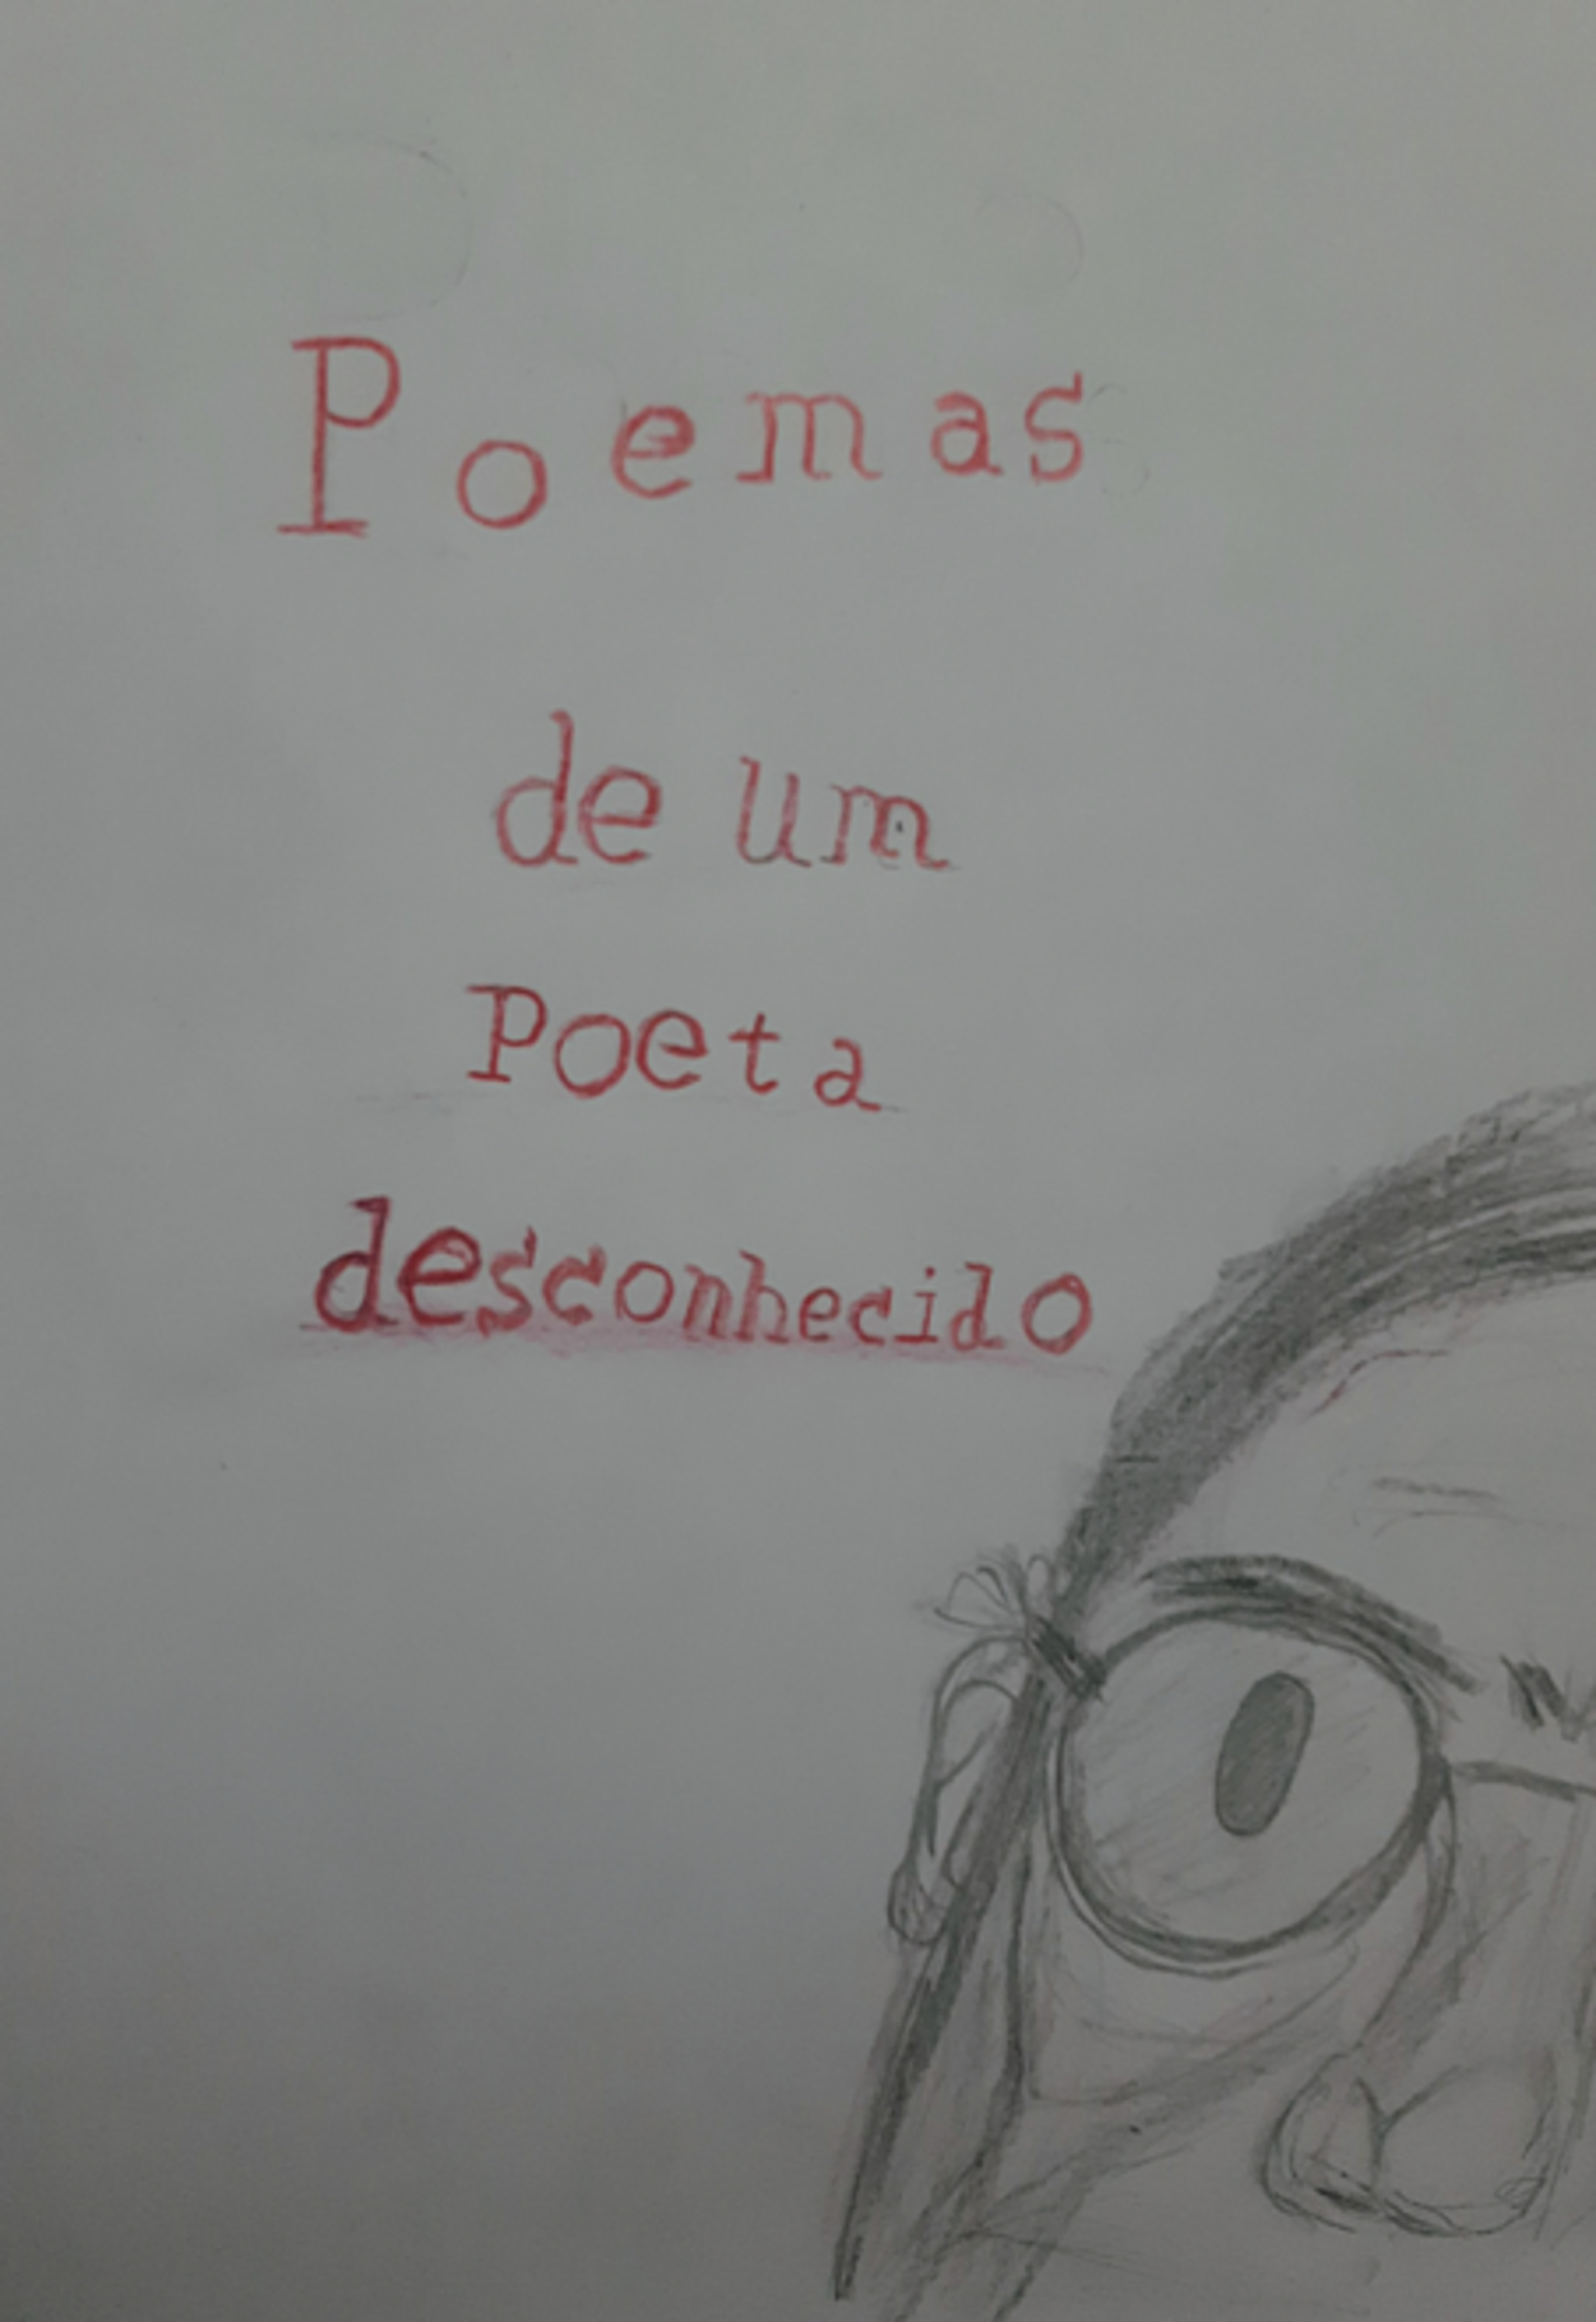 Poemas
de um
Poeta
desconhecido